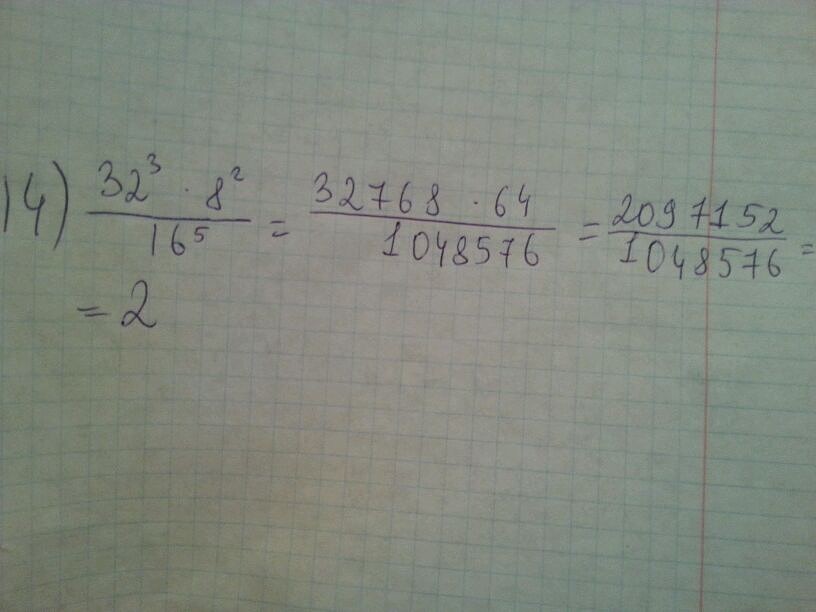 14) 32³ · 8² / 16⁵ = 32768 · 64 / 1048576 = 2097152 / 1048576 =
= 2